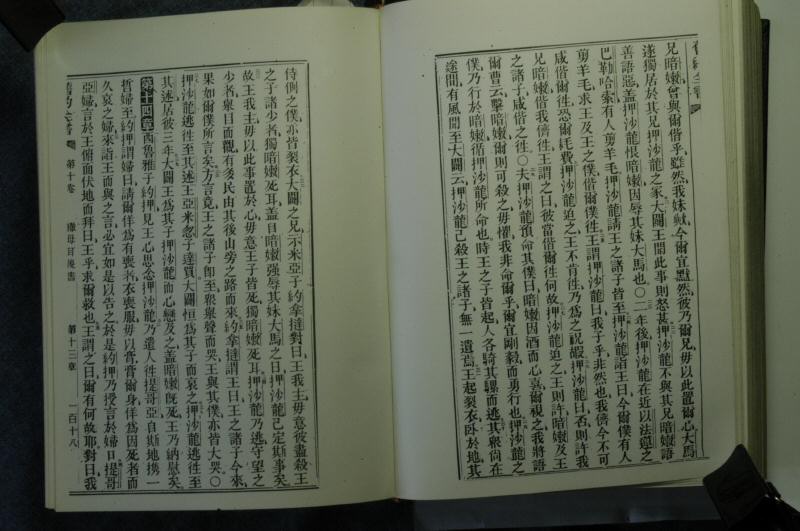 兄暗嫩曾與爾偕乎雖然我妹歟今爾宜默然彼乃爾兄毋以此置爾心大馬
遂獨居於其兄押沙龍之家大闢王聞此事則怒甚押沙龍不與其兄暗嫩語
善語惡蓋押沙龍恨暗嫩因辱其妹大馬也○二年後押沙龍在近以法蓮之
巴勒哈索有人剪羊毛押沙龍請王之諸子皆至押沙龍詣王曰今爾僕有人
剪羊毛求王及王之僕偕爾僕往王謂押沙龍曰我子乎非然也我儕今不可
咸偕爾往恐爾耗費押沙龍迫之王不肯往乃為之祝嘏押沙龍曰否則許我
兄暗嫩偕我儕往王謂之曰彼當偕爾往何故押沙龍迫之王則許暗嫩及王
之諸子咸偕之往○夫押沙龍預命其僕曰暗嫩因酒而心喜爾視之我將語
爾曹云擊暗嫩爾則可殺之毋懼我非命爾乎爾宜剛毅而勇行也押沙龍之
僕乃行於暗嫩循押沙龍所命也時王之子皆起人各騎其騾而逃其眾尚在
途間有風聞至大闢云押沙龍已殺王之諸子無一遺焉王起裂衣臥於地其
侍側之僕亦皆裂衣大闢之兄示米亞子約拿撻對曰王我主毋意彼盡殺王
之子諸少者獨暗嫩死耳蓋自暗嫩强辱其妹大馬之日押沙龍已定斯事矣
故王我主毋以此事置於心毋意王子皆死獨暗嫩死耳押沙龍乃逃守望之
少者舉目而觀有多民由其後山旁之路而來約拿撻謂王曰王之子今來
果如爾僕所言矣方言竟王之諸子即至舉聲而哭王與其僕亦皆大哭○
押沙龍逃往至其述王亞米忽子達買大闢恒為其子而哀之押沙龍逃往至
其述居彼三年大闢王為其子押沙龍而心戀及之蓋暗嫩既死王乃納慰矣
第十四章 西魯雅子約押見王心思念押沙龍乃遣人往提哥亞自斯地携一
哲婦至約押謂婦曰請爾佯為有喪者衣喪服毋以膏膏爾身佯為因死者而
久哀之婦來詣王而與之言必宜如是以告之於是約押乃授言於婦口提哥
亞婦言於王俯面伏地而拜曰王乎求爾救也王謂之曰爾有何故耶對曰我
第十卷 撒母耳後書 第十三章 一百十八